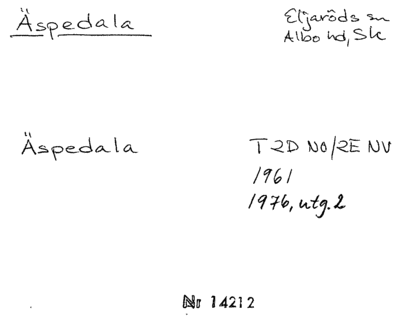 Äspedala
Eljaröds sn
Albo hd, Sk
Äspedala
T 2D NO/2E NV
1961
1976, utg. 2
Nr 14212